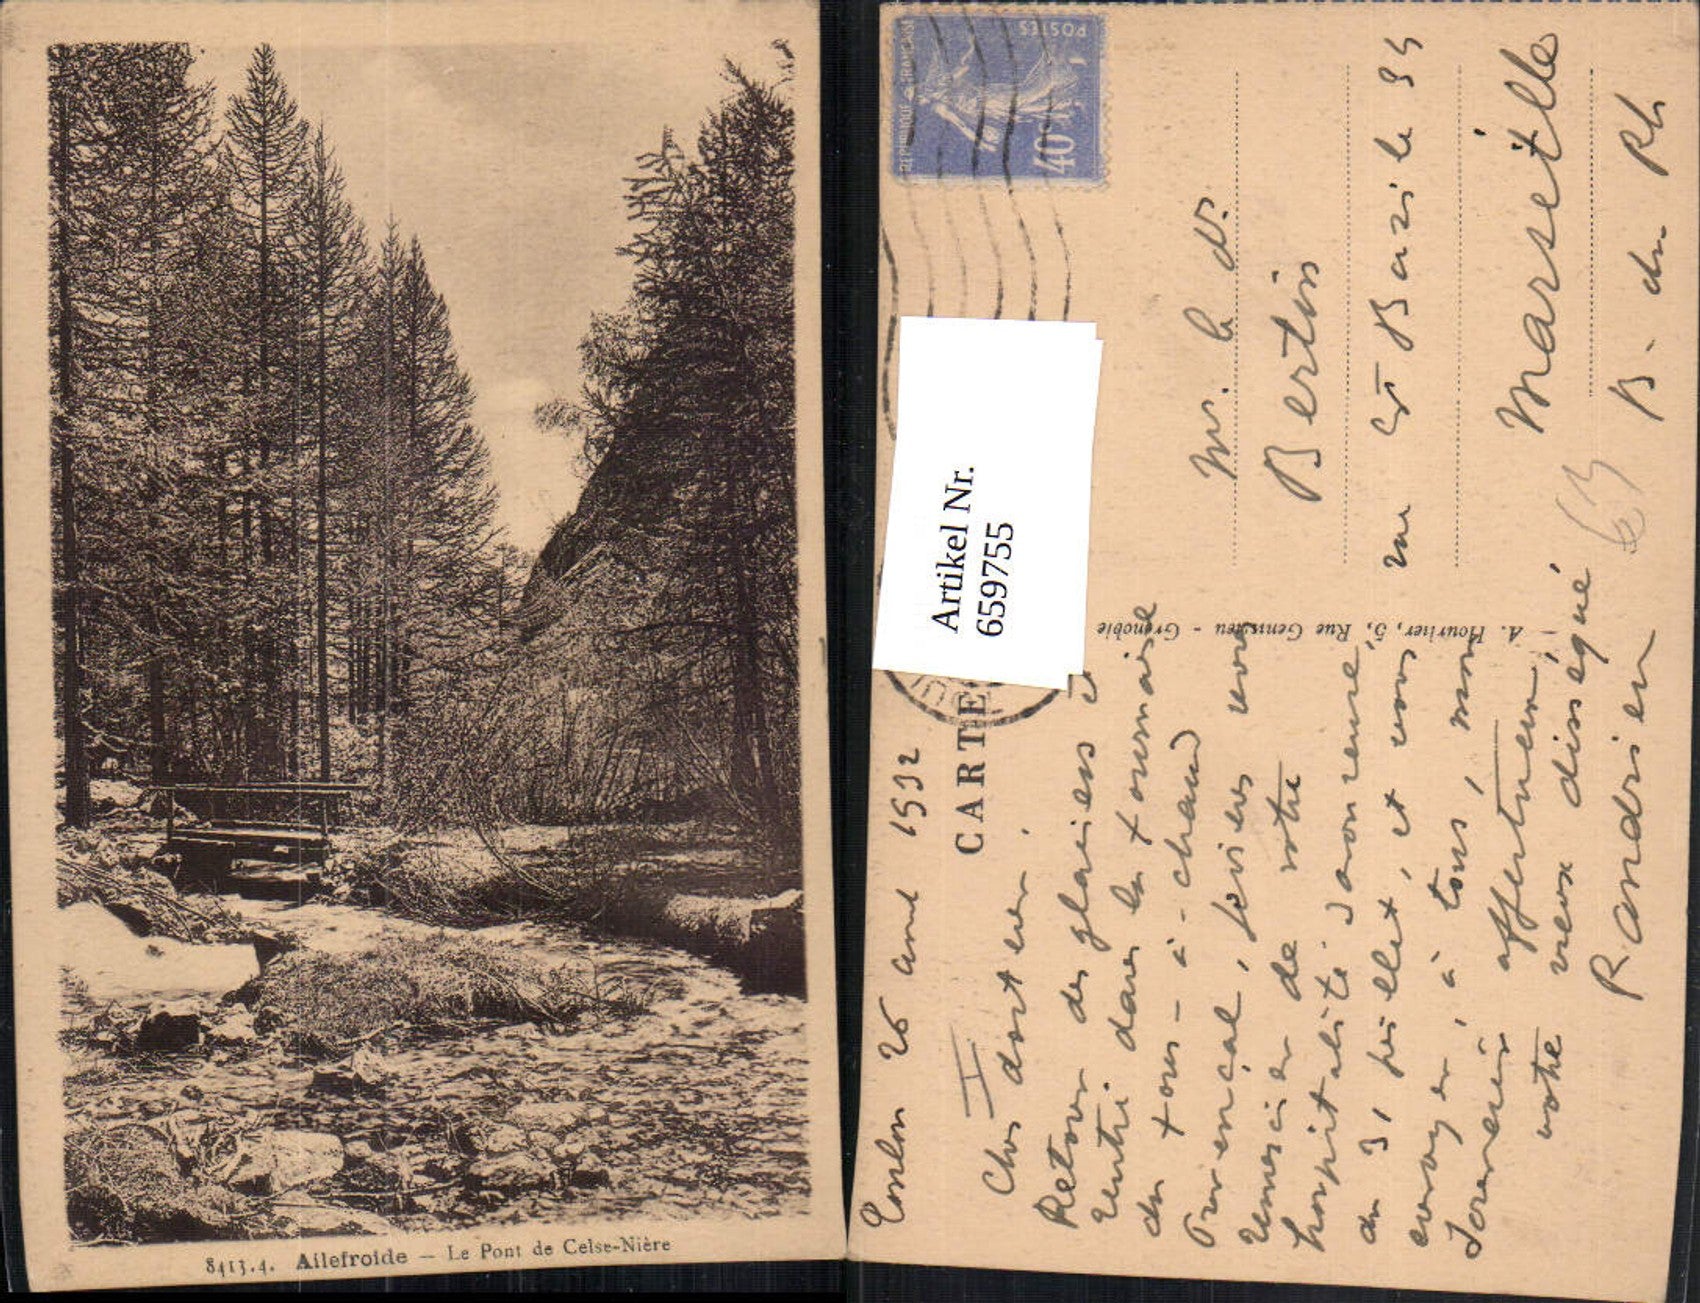 8413.4. Ailefroide — Le Pont de Celse-Nière
REPUBLIQUE FRANÇAISE
POSTES
40c
Artikel Nr.
659755
CARTE
A. Mourier, 5, Rue Genissieu - Grenoble
Toulon 26 aout 1932
II
Cher docteur,
Retour des glaciers et
rentré dans la fournaise
du tous-à-chaud
Provençal, je viens vous
remercier de votre
hospitalité
du 31 juillet, et vous
envoyer, à tous, mon
souvenir affectueux,
votre vieux disséqué
Randrieu
Mr. le Dr.
Bertin
rue St Bazile 34
Marseille
B. du Rh